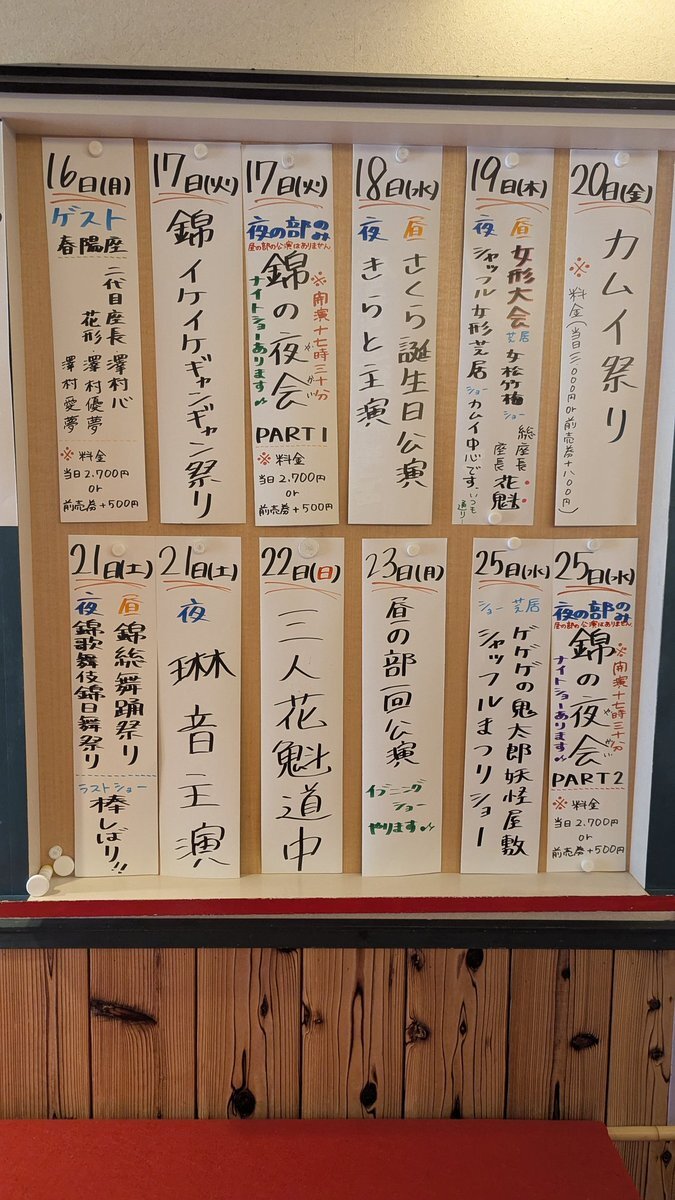 16日(月)
ゲスト
春陽座
二代目座長 澤村心
花形 澤村優夢
澤村愛夢
※料金
当日2.700円
or
前売券+500円
17日(火)
錦イケイケギャンギャン祭り
17日(火)
夜の部のみ
昼の部の公演はありません
※開演十七時三十分
錦の夜会
やかい
ナイトショーあります
PART1
※料金
当日2.700円
or
前売券+500円
18日(水)
昼 さくら誕生日公演
夜 きらと主演
19日(木)
昼 女形大会 芝居 女松竹梅 ショー 総座長 座長 花魁
夜 シャッフル女形芝居 ショー カムイ中心です。いつも通り
20日(金)
カムイ祭り
※料金(当日三、〇〇〇円or前売券+八〇〇円)
21日(土)
昼 錦総舞踊祭り
夜 錦歌舞伎錦日舞祭り
ラストショー
棒しばり!!
21日(土)
夜
琳音主演
22日(日)
三人花魁道中
23日(月)
昼の部一回公演
イブニング
ショー
やります!!
25日(水)
芝居 ゲゲゲの鬼太郎妖怪屋敷
ショー シャッフルまつりショー
25日(水)
夜の部のみ
昼の部の公演はありません
※開演十七時三十分
錦の夜会
やかい
ナイトショーあります
PART2
※料金
当日2.700円
or
前売券+500円